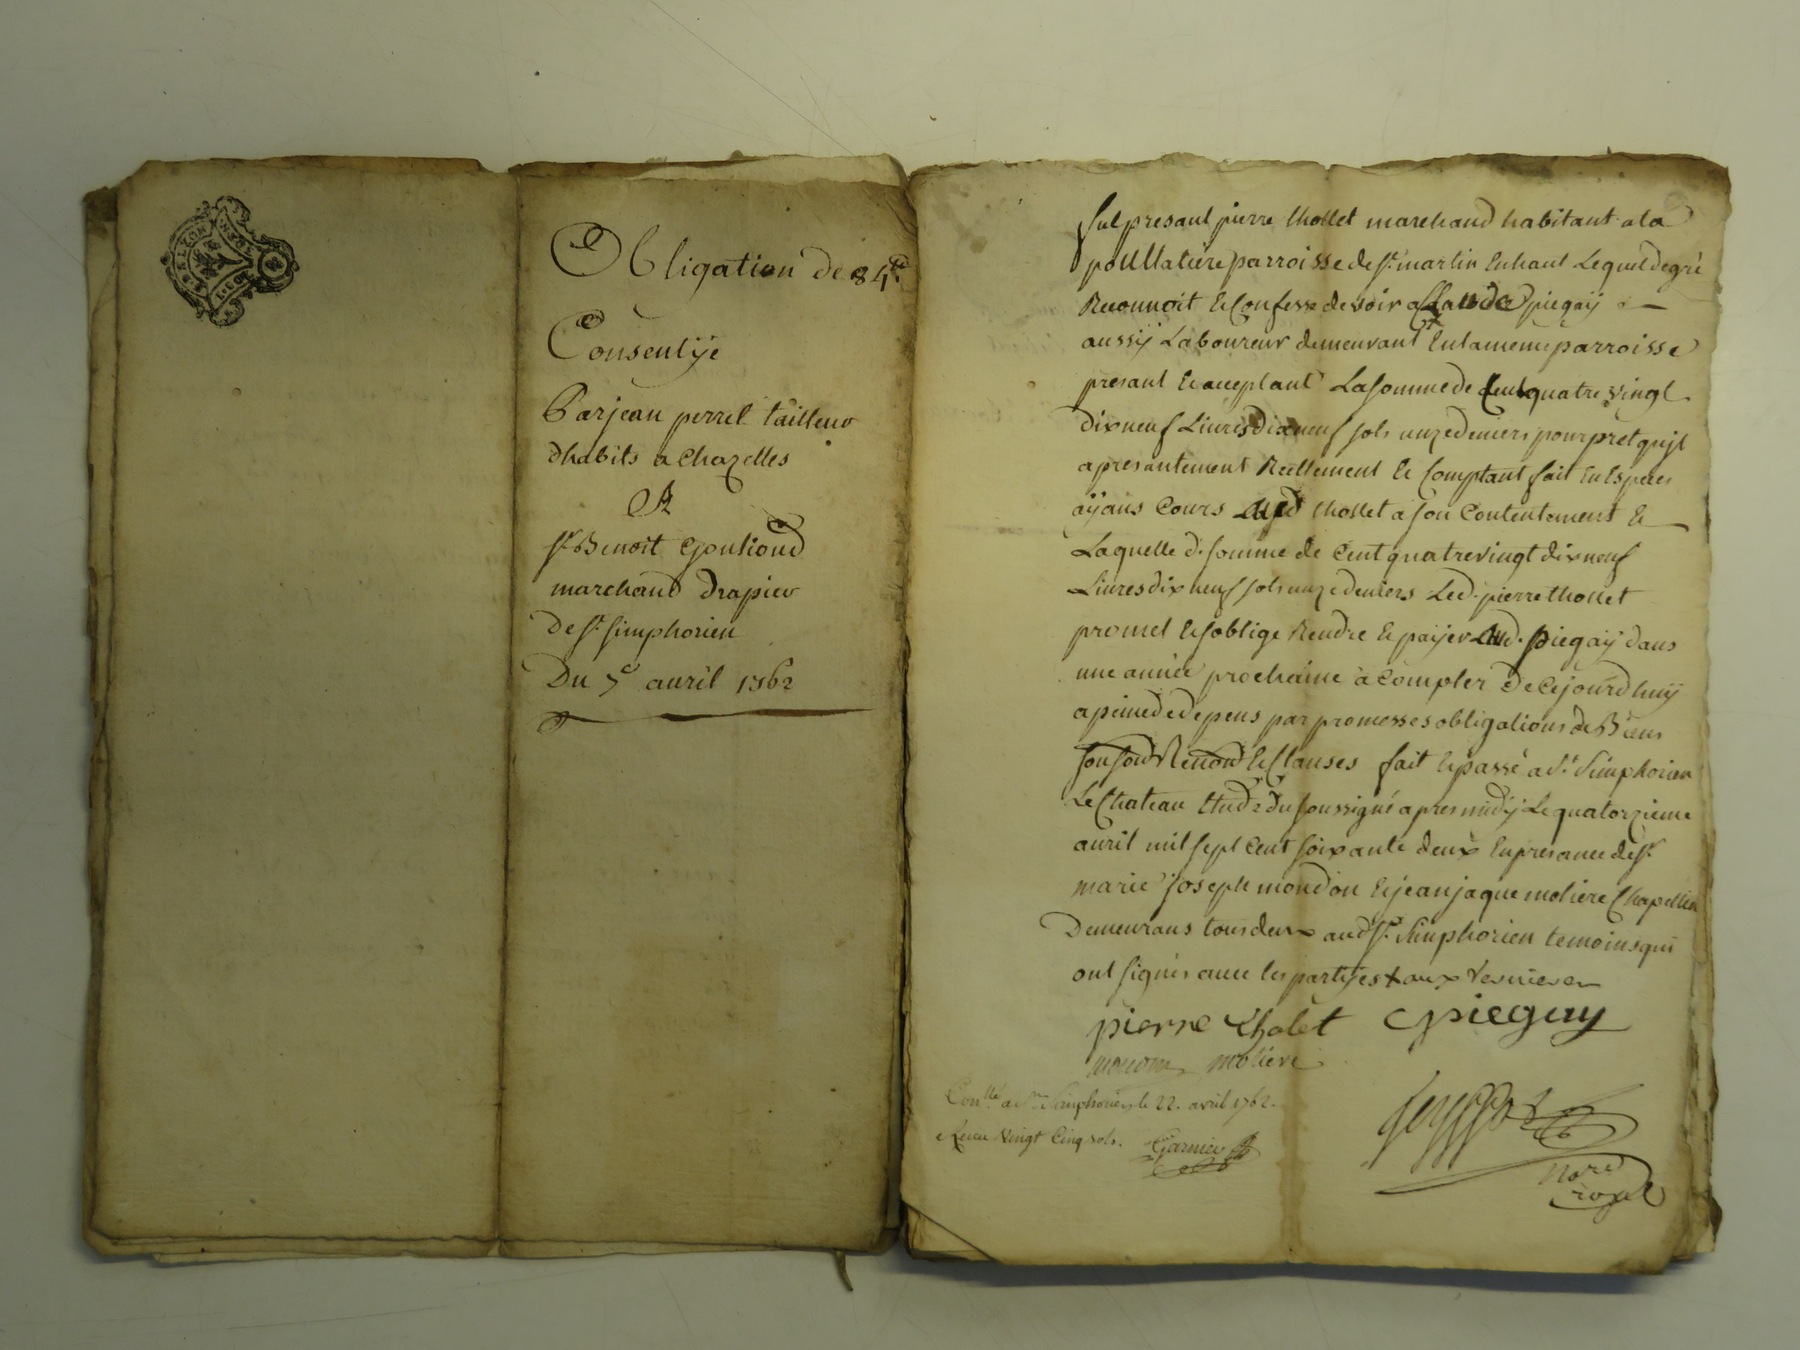 Obligation de 84#
Consentije
Par jean perret tailleur
dhabits a Chazelles
A
Sr. Benoit Goutiond
marchand drapier
De St. simphorien
Du 7e auril 1762
fut presant pierre thollet marchand habitant a la
poullatiere parroisse de St. martin Enhaut Lequel de gré
Reconnoit & Confesse devoir a Claude piegaÿ
aussÿ Laboureur demeurant En la meme parroisse
presant & acceptant La somme de Cent quatre vingt
dix neuf Liures dix neuf sols unze deniers pour prêt quijl
a presantement Reellement & Comptant fait En Especes
aÿans Cours aud thollet a son Contentement &
Laquelle d. somme de Cent quatre vingt dix neuf
Liures dix neuf sols unze deniers Led. pierre thollet
promet & soblige Rendre & païjer aud. piegaÿ dans
une année prochaine a Compter De Cejourdhuÿ
a peine de depens par promesses obligations de Biens
Renond & Clauses fait & passé a St. Simphorien
Le Chateau Etude du soussigné apres midÿ Le quatorzieme
auril mil sept Cent soixante deux En presance de Sr.
marie joseph mondon & jean jaque moliere Chapellier
Demeurans tous deux aud St. Simphorien temoins qui
ont signés auec les partijes
pierre tholet Cpiegay
mondon moliere
Conllé a St. Simphorien le 22. avril 1762.
Receu vingt Cinq sols. Garnier
Nore
royal